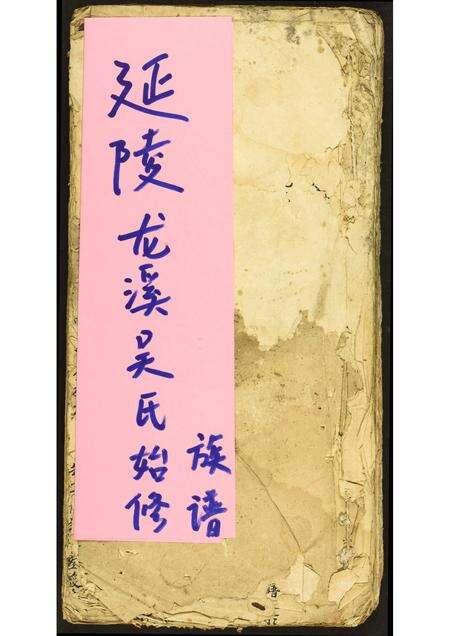 延陵龙溪吴氏始修
族谱